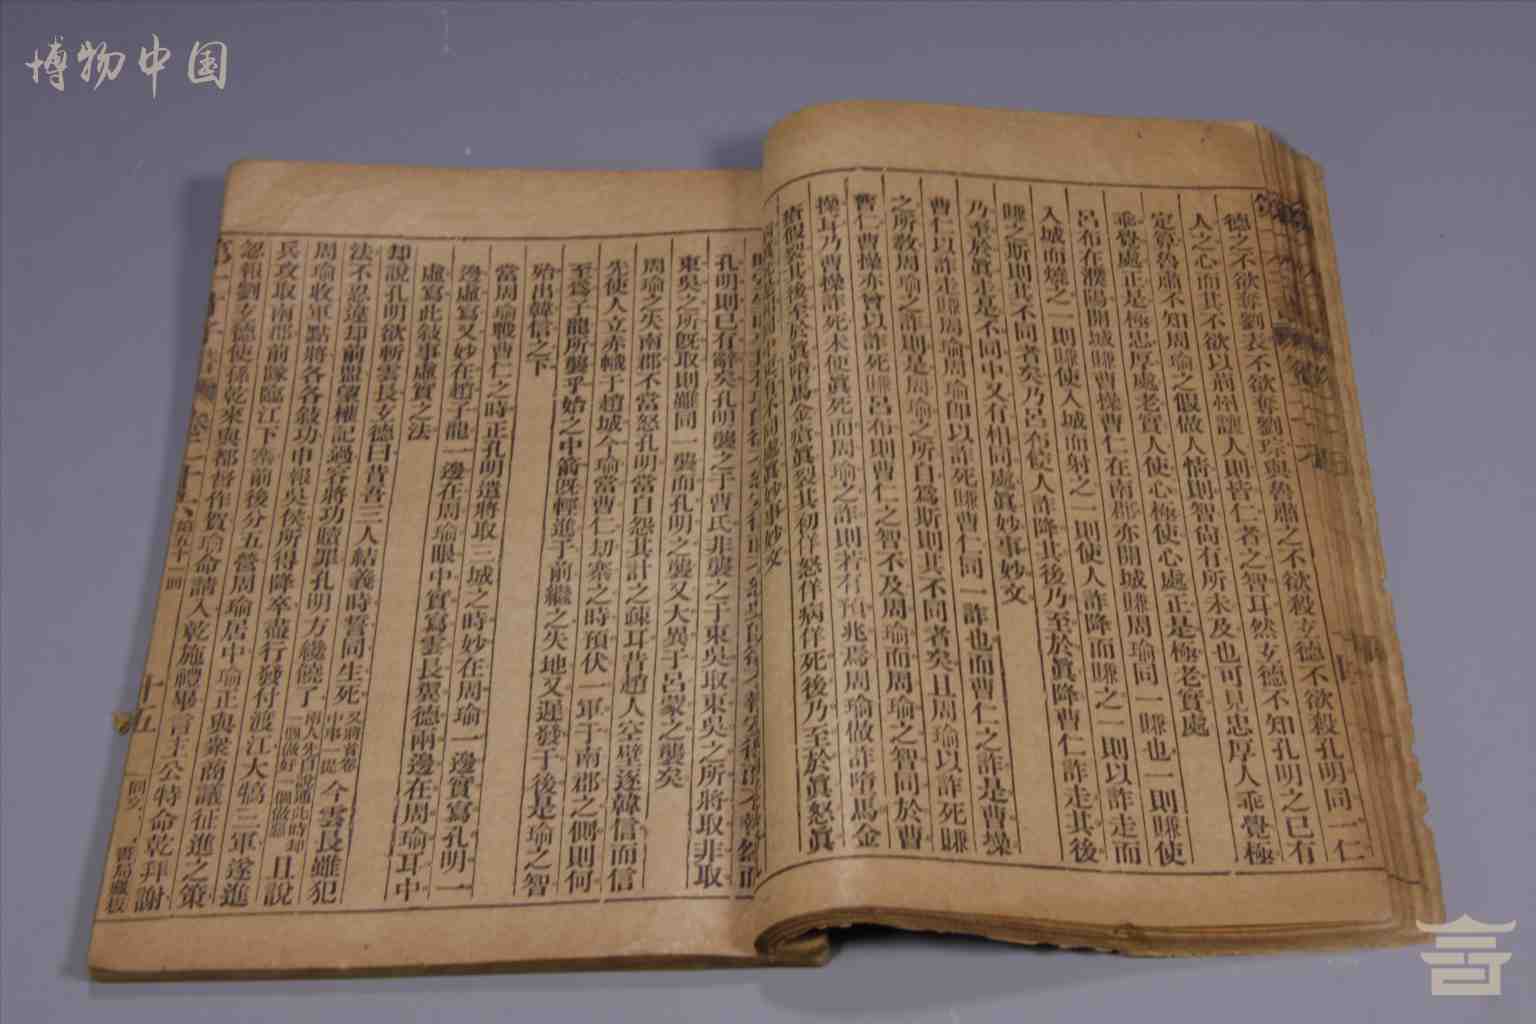 博物中国
德之不欲奪劉表不欲奪劉琮與魯肅之不欲殺玄德不欲殺孔明同一仁
人之心而其不欲以荊州讓人則皆仁者之智耳然玄德不知孔明之已有
定算魯肅不知周瑜之假做人情則智尙有所未及也可見忠厚人乖覺極
乖覺處正是極忠厚處老實人使心極使心處正是極老實處
呂布在濮陽開城賺曹操曹仁在南郡亦開城賺周瑜同一賺也一則賺使
入城而燒之一則賺使入城而射之一則使人詐降而賺之一則以詐走而
賺之斯則其不同者矣乃呂布使人詐降其後乃至於眞降曹仁詐走其後
乃至於眞走是不同中又有相同處眞妙事妙文
曹仁以詐走賺周瑜周瑜卽以詐死賺曹仁同一詐也而曹仁之詐是曹操
之所敎周瑜之詐則是周瑜之所自爲斯則其不同者矣且周瑜以詐死賺
曹仁曹操亦曾以詐死賺呂布則曹仁之智不及周瑜而周瑜之智同於曹
操耳乃曹操詐死未使眞死而周瑜之詐則若有預兆焉周瑜做詐墮馬金
瘡假裂其後至於眞墮馬金瘡眞裂其初佯怒佯病佯死後乃至於眞怒眞
孔明則已有辭矣孔明襲之于曹氏非襲之于東吳取東吳之所將取非取
東吳之所旣取則雖同一襲而孔明之襲又大異于呂蒙之襲矣
周瑜之失南郡不當怒孔明當自怨其計之疎耳昔趙人空壁逐韓信而信
先使人立赤幟于趙城今瑜當曹仁劫寨之時預伏一軍于南郡之側則何
至爲子龍所襲乎始之中箭旣輕進于前繼之失地又遲發于後是瑜之智
殆出韓信之下
當周瑜戰曹仁之時正孔明遣將取三城之時妙在周瑜一邊實寫孔明一
邊虛寫又妙在趙子龍一邊在周瑜眼中實寫雲長翼德兩邊在周瑜耳中
虛寫此敍事虛實之法
却說孔明欲斬雲長玄德曰昔吾三人結義時誓同生死今雲長雖犯
法不忍違却前盟望權記過容將功贖罪孔明方纔饒了且說
周瑜收軍點將各各敍功申報吳侯所得降卒盡行發付渡江大犒三軍遂進
兵攻取南郡前隊臨江下寨前後分五營周瑜居中瑜正與衆商議征進之策
忽報劉玄德使孫乾來與都督作賀瑜命請入乾施禮畢言主公特命乾拜謝
第五十一回
十五